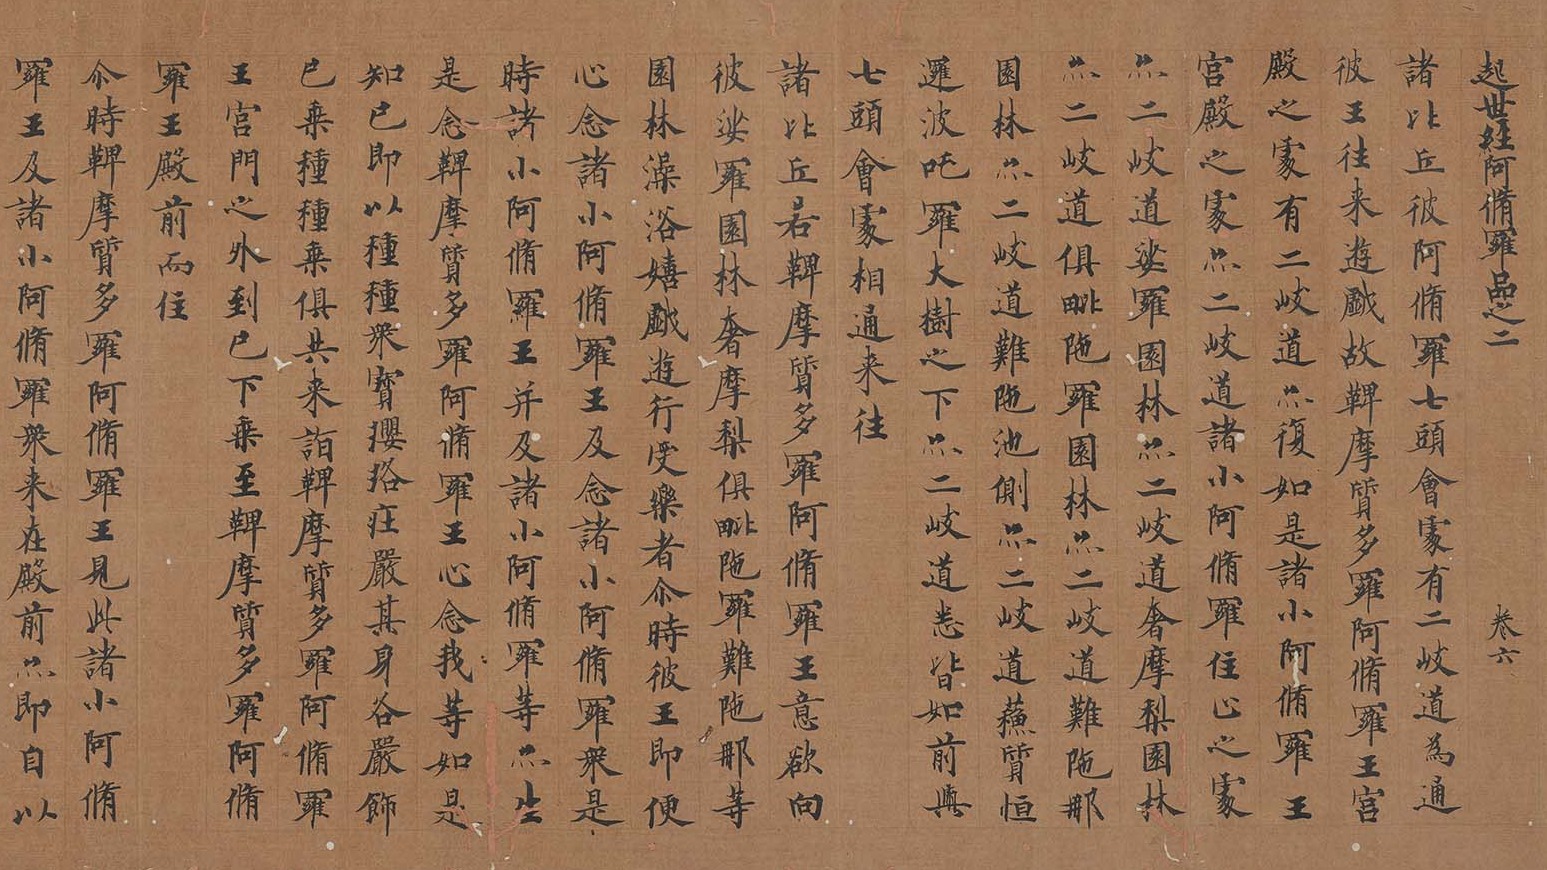 起世経阿脩羅品之二 巻六
諸比丘彼阿脩羅七頭會處有二岐道為通
彼王往来遊戱故鞞摩質多羅阿脩羅王宮
殿之處有二岐道亦復如是諸小阿脩羅王
宮殿之處亦二岐道諸小阿脩羅住止之處
亦二岐道娑羅園林亦二岐道奢摩梨園林
亦二岐道俱毗陁羅園林亦二岐道難陁那
園林亦二岐道難陁池側亦二岐道蘓質恒
邏波吒羅大樹之下亦二岐道悉皆如前與
七頭會處相通来往
諸比丘若鞞摩質多羅阿脩羅王意欲向
彼娑羅園林奢摩梨俱毗陁羅難陁那等
園林澡浴嬉戱遊行受樂者尒時彼王即便
心念諸小阿脩羅王及念諸小阿脩羅衆是
時諸小阿脩羅王并及諸小阿脩羅等亦生
是念鞞摩質多羅阿脩羅王心念我等如是
知已即以種種衆寶瓔珞莊嚴其身各嚴飾
已乗種種乗俱共来詣鞞摩質多羅阿脩羅
王宮門之外到已下乗至鞞摩質多羅阿脩
羅王殿前而住
尒時鞞摩質多羅阿脩羅王見此諸小阿脩
羅王及諸小阿脩羅衆来在殿前亦即自以